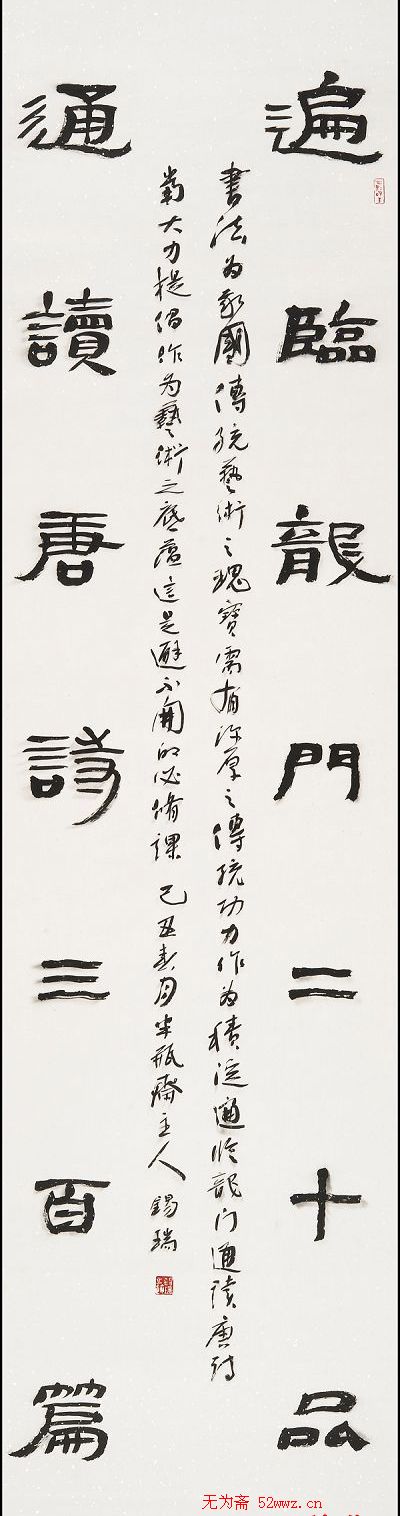 遍臨龍門二十品
書法為我國傳統藝術之瑰寶需有深厚之傳統功力作為積淀遍臨龍门通讀唐詩
當大力提倡作为藝術之底蘊這是避不開的必脩課 己丑春月半瓶齋主人 錫瑞
通讀唐詩三百篇
无为斋 52wwz.cn